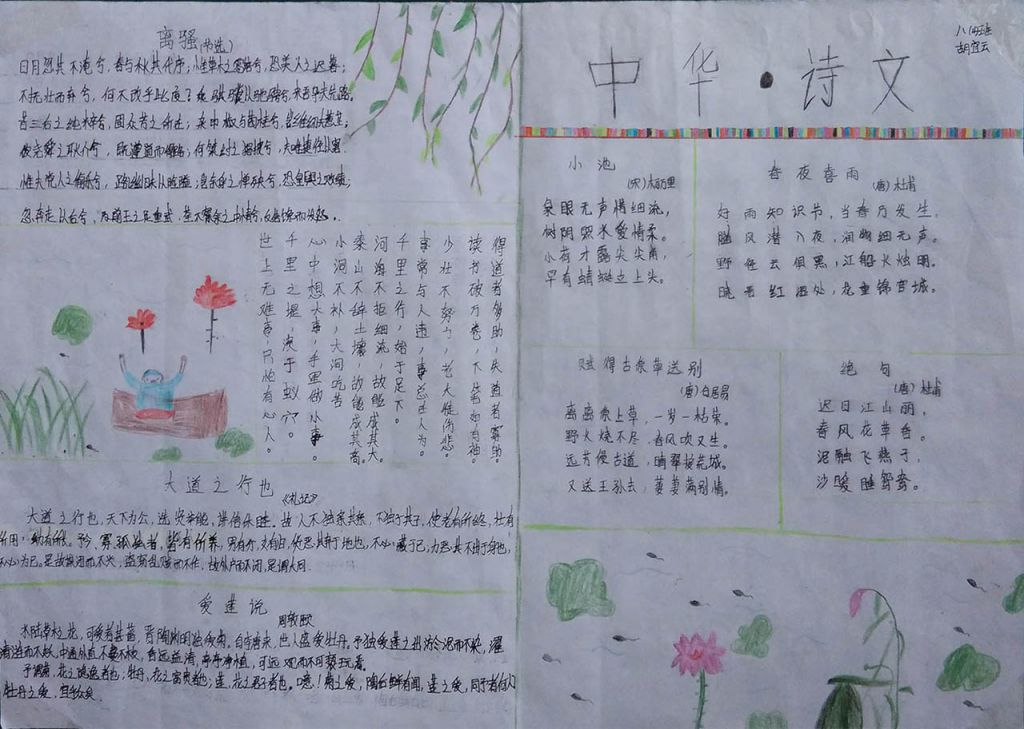 离骚(节选)
日月忽其不淹兮，春与秋其代序；惟草木之零落兮，恐美人之迟暮；
不抚壮而弃兮，何不改乎此度？
昔三后之纯粹兮，固众芳之所在；杂申椒与菌桂兮，
彼尧舜之耿介兮，既遵道而得路；何桀纣之猖披兮，夫唯捷径以窘
惟夫党人之偷乐兮，路幽昧以险隘；岂余身之惮殃兮，恐皇舆之败绩；
忽奔走以先后兮，及前王之踵武；荃不察余之中情兮，反信谗而齌怒。
得道者多助，失道者寡助。
读书破万卷，下笔如有神
少壮不努力，老大徒伤悲
事常与人违，事总在人为。
千里之行，始于足下。
河海不拒细流，故能成其大。
泰山不辞土壤，故能成其高。
小洞不补，大洞吃苦
心中想大事，手里做小事。
千里之堤，溃于蚁穴。
世上无难事，只怕有心人。
大道之行也
《礼记》
大道之行也，天下为公，选贤举能，讲信修睦。故人不独亲其亲，不独子其子，使老有所终，壮有
所用，幼有所长，矜、寡孤独者，皆有所养，男有分，女有归，货恶其弃于地也，不必藏于己；力恶其不出于身也，
不必为己。是故谋闭而不兴，盗窃乱贼而不作，故外户而不闭，是谓大同
爱莲说
周敦颐
水陆草木之花，可爱者甚蕃。晋陶渊明独爱菊。自李唐来，世人盛爱牡丹。予独爱莲之出淤泥而不染，濯
清涟而不妖，中通外直，不蔓不枝，香远益清，亭亭净植，可远观而不可亵玩焉。
予谓菊，花之隐逸者也；牡丹，花之富贵者也；莲，花之君子者也。噫！菊之爱，陶后鲜有闻，莲之爱，同予者何人
牡丹之爱，宜乎众矣
八(4)班
中华·诗文
小池
(宋)杨万里
泉眼无声惜细流，
树阴照水爱晴柔。
小荷才露尖尖角，
早有蜻蜓立上头。
春夜喜雨
(唐)杜甫
好雨知识节，当春乃发生。
随风潜入夜，润物细无声。
野径云俱黑，江船火烛明。
晓看红湿处，花重锦官城。
赋得古原草送别
(唐)白居易
离离原上草，一岁一枯荣。
野火烧不尽，春风吹又生。
远芳侵古道，晴翠接荒城。
又送王孙去，萋萋满别情。
绝句
(唐)杜甫
迟日江山丽，
春风花草香。
泥融飞燕子，
沙暖睡鸳鸯。